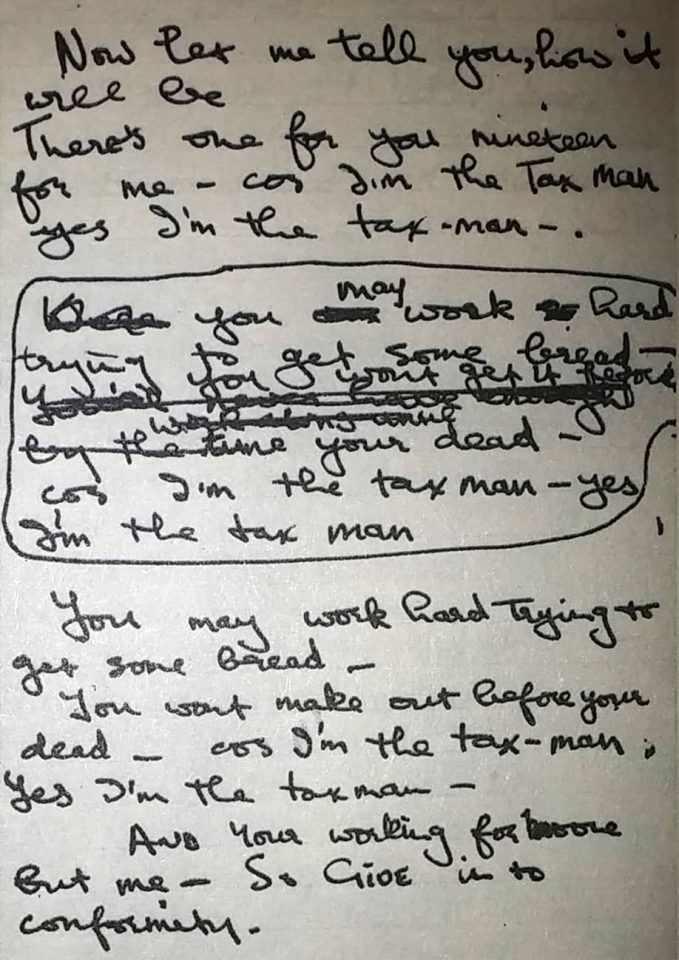 Now let me tell you, how it
will be
There's one for you nineteen
for me – cos I'm the Tax man
yes I'm the tax-man –.
you may work hard
trying to get some bread –
you wont get it before
by the time your dead –
cos I'm the tax man – yes
I'm the tax man
You may work hard Trying to
get some bread –
You wont make out before your
dead – cos I'm the tax-man,
Yes I'm the taxman –
AND Your working for
But me – So GIVE in to
conformity.